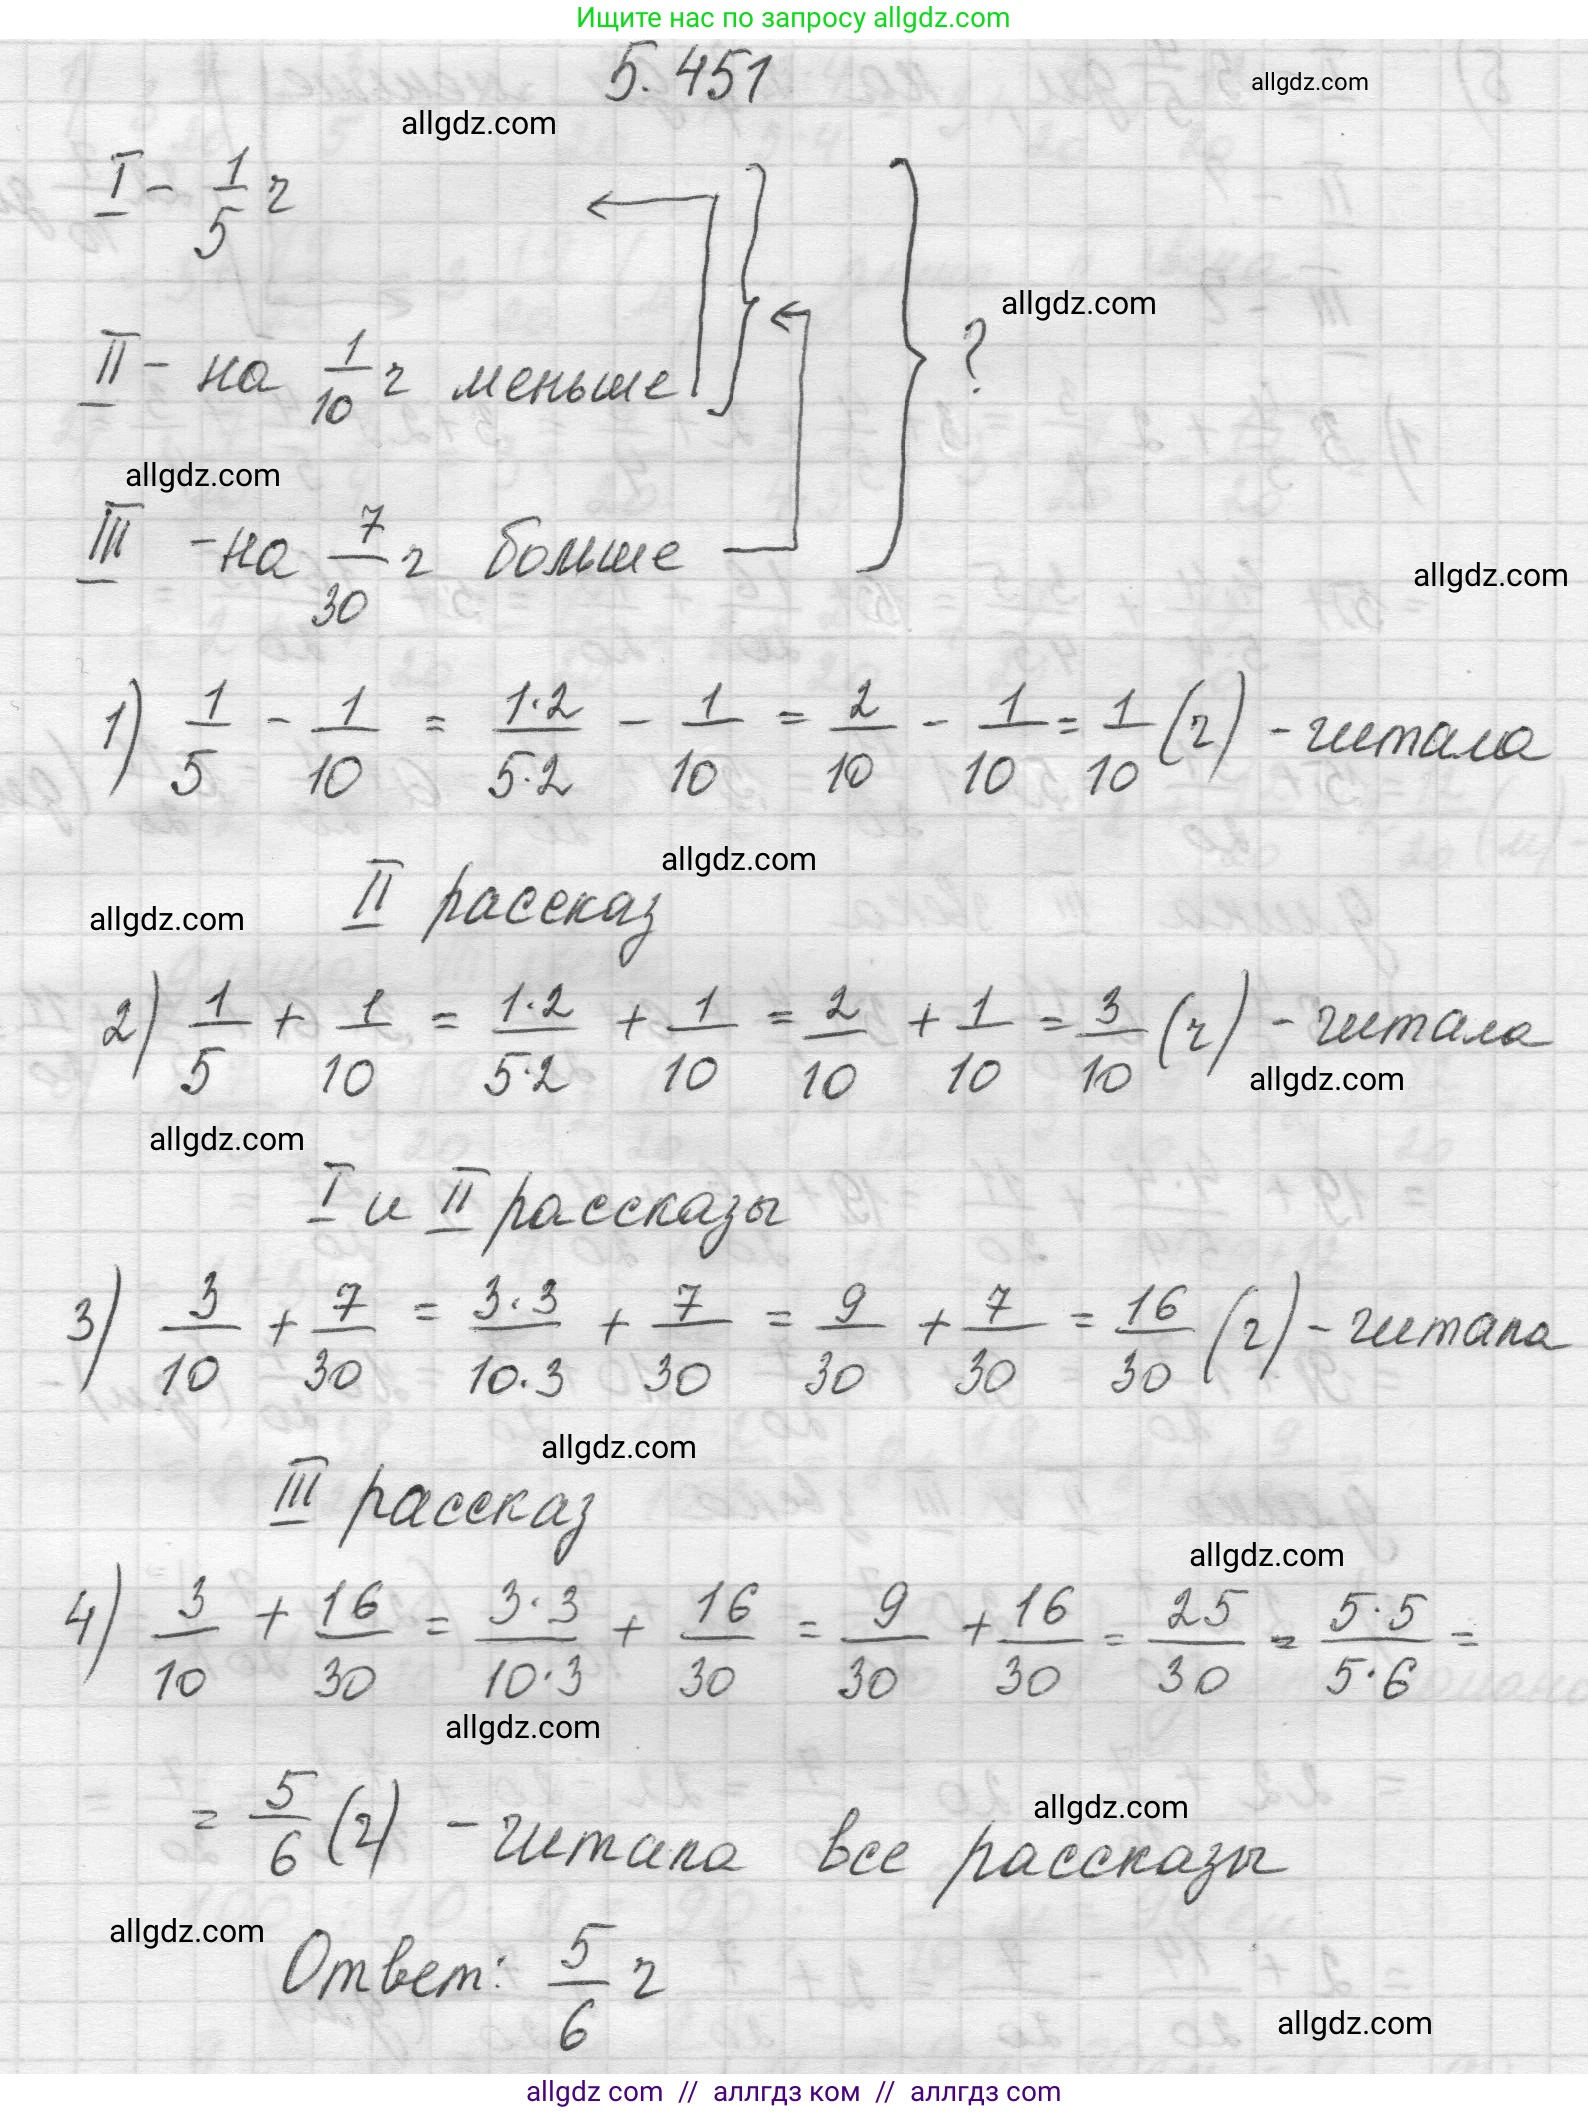 Ищите нас по запросу allgdz.com
5.451
allgdz.com
allgdz.com
I - 1/5 ч
allgdz.com
II - на 1/10 ч меньше
?
allgdz.com
III - на 7/30 ч больше
allgdz.com
1) 1/5 - 1/10 = 1·2/5·2 - 1/10 = 2/10 - 1/10 = 1/10 (ч) - читала
allgdz.com
II рассказ
allgdz.com
2) 1/5 + 1/10 = 1·2/5·2 + 1/10 = 2/10 + 1/10 = 3/10 (ч) - читала
allgdz.com
allgdz.com
I и II рассказы
3) 3/10 + 7/30 = 3·3/10·3 + 7/30 = 9/30 + 7/30 = 16/30 (ч) - читала
allgdz.com
III рассказ
allgdz.com
4) 3/10 + 16/30 = 3·3/10·3 + 16/30 = 9/30 + 16/30 = 25/30 = 5·5/5·6 =
allgdz.com
= 5/6 (ч) - читала все рассказы
allgdz.com
allgdz.com
Ответ: 5/6 ч
allgdz.com
allgdz com // аллгдз ком // аллгдз com